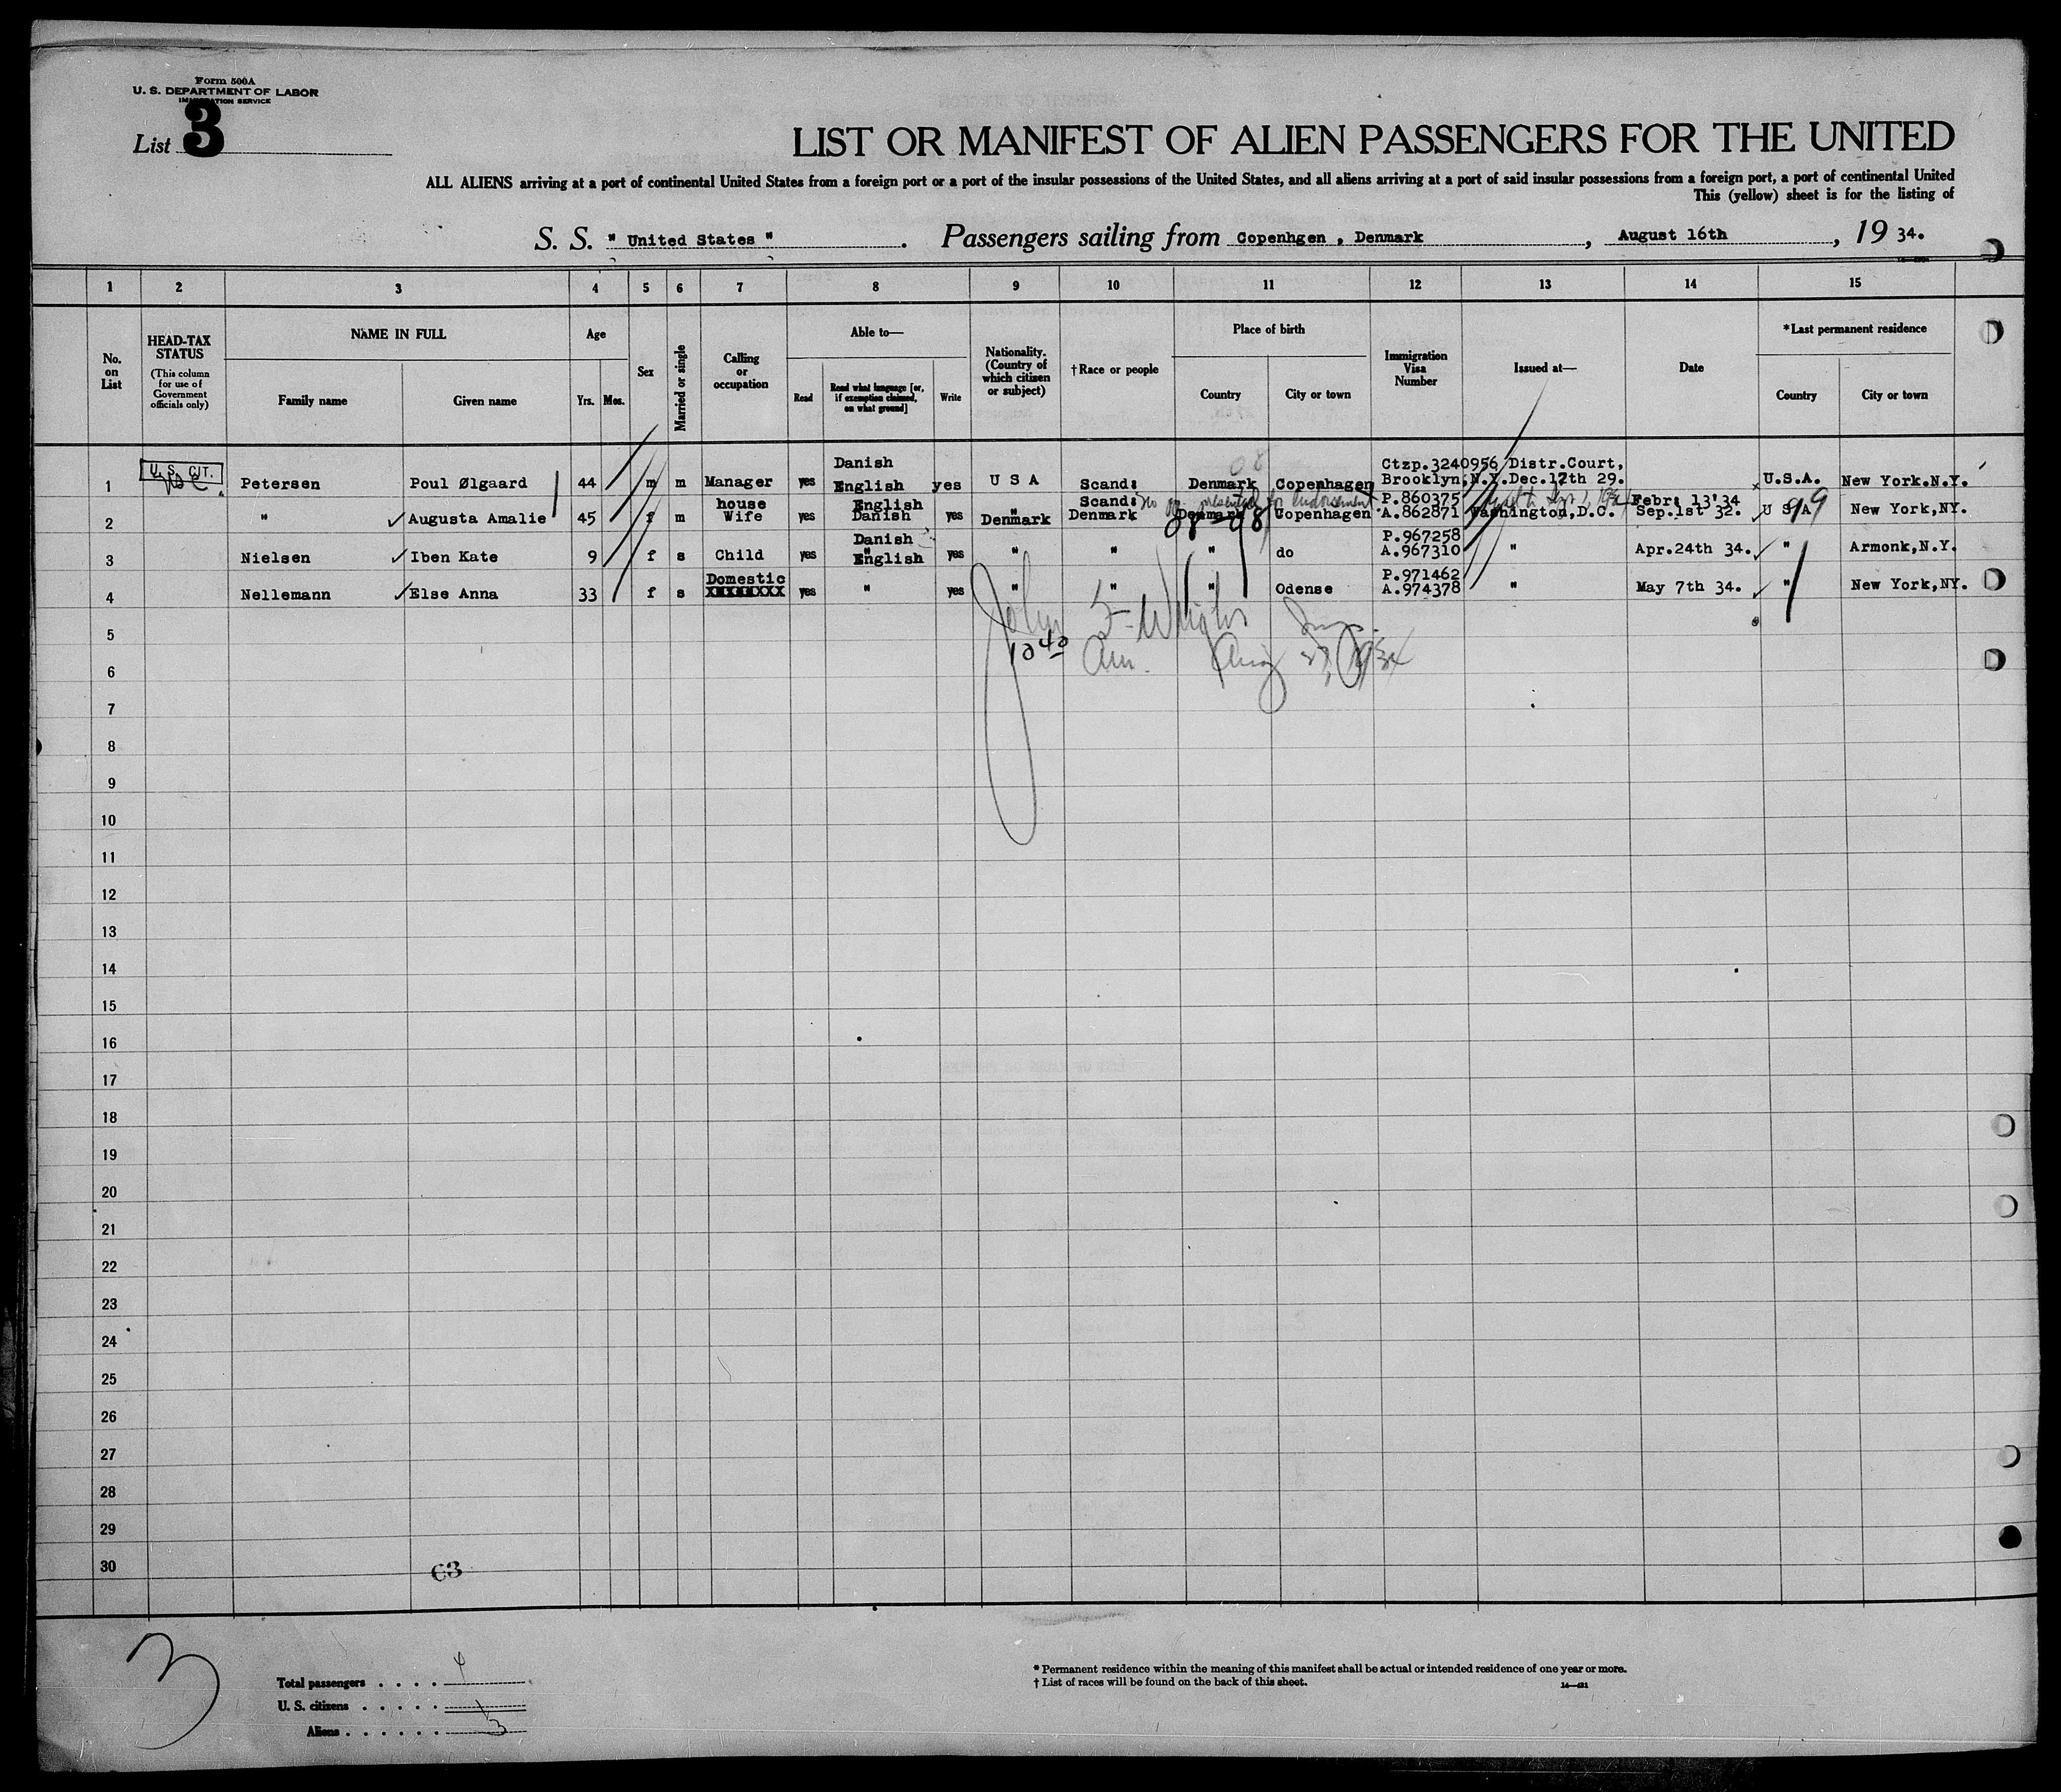 Form 500A
U. S. DEPARTMENT OF LABOR
IMMIGRATION SERVICE
List 3
LIST OR MANIFEST OF ALIEN PASSENGERS FOR THE UNITED
ALL ALIENS arriving at a port of continental United States from a foreign port or a port of the insular possessions of the United States, and all aliens arriving at a port of said insular possessions from a foreign port, a port of continental United
This (yellow) sheet is for the listing of
S. S. " United States ". Passengers sailing from Copenhgen , Denmark, August 16th, 19 34.
1 2 3 4 5 6 7 8 9 10 11 12 13 14 15
No. on List
HEAD-TAX STATUS
(This column for use of Government officials only)
NAME IN FULL
Family name Given name
Age
Yrs. Mos.
Sex
Married or single
Calling or occupation
Able to—
Read
Read what language [or, if exemption claimed, on what ground]
Write
Nationality. (Country of which citizen or subject)
†Race or people
Place of birth
Country City or town
Immigration Visa Number
Issued at—
Date
*Last permanent residence
Country City or town
1 U.S. CIT. Petersen Poul Ølgaard 44 m m Manager yes Danish English yes U S A Scand: Denmark Copenhagen Ctzp.3240956 Distr.Court, Brooklyn,N.Y.Dec.17th 29. U.S.A. New York.N.Y.
08
2 " Augusta Amalie 45 f m house Wife yes English Danish yes " Denmark Scand: Denmark Denmark Copenhagen P.860375 A.862871 Washington,D.C. Febr: 13'34 Sep.1st 32. U S A New York,NY.
No presented for endorsement
08-98
99
3 Nielsen Iben Kate 9 f s Child yes Danish " English yes " " " do P.967258 A.967310 " Apr.24th 34. " Armonk,N.Y.
4 Nellemann Else Anna 33 f s Domestic XXXXXXXX yes " yes " " " Odense P.971462 A.974378 " May 7th 34. " New York,NY.
5
John F- Wright Insp.
6
10 40 Am. Aug 27, 1934
7
8
9
10
11
12
13
14
15
16
17
18
19
20
21
22
23
24
25
26
27
28
29
30
63
3
Total passengers . . . . 4
U. S. citizens . . . . . 1
Aliens . . . . . . 3
* Permanent residence within the meaning of this manifest shall be actual or intended residence of one year or more.
† List of races will be found on the back of this sheet.
14—421